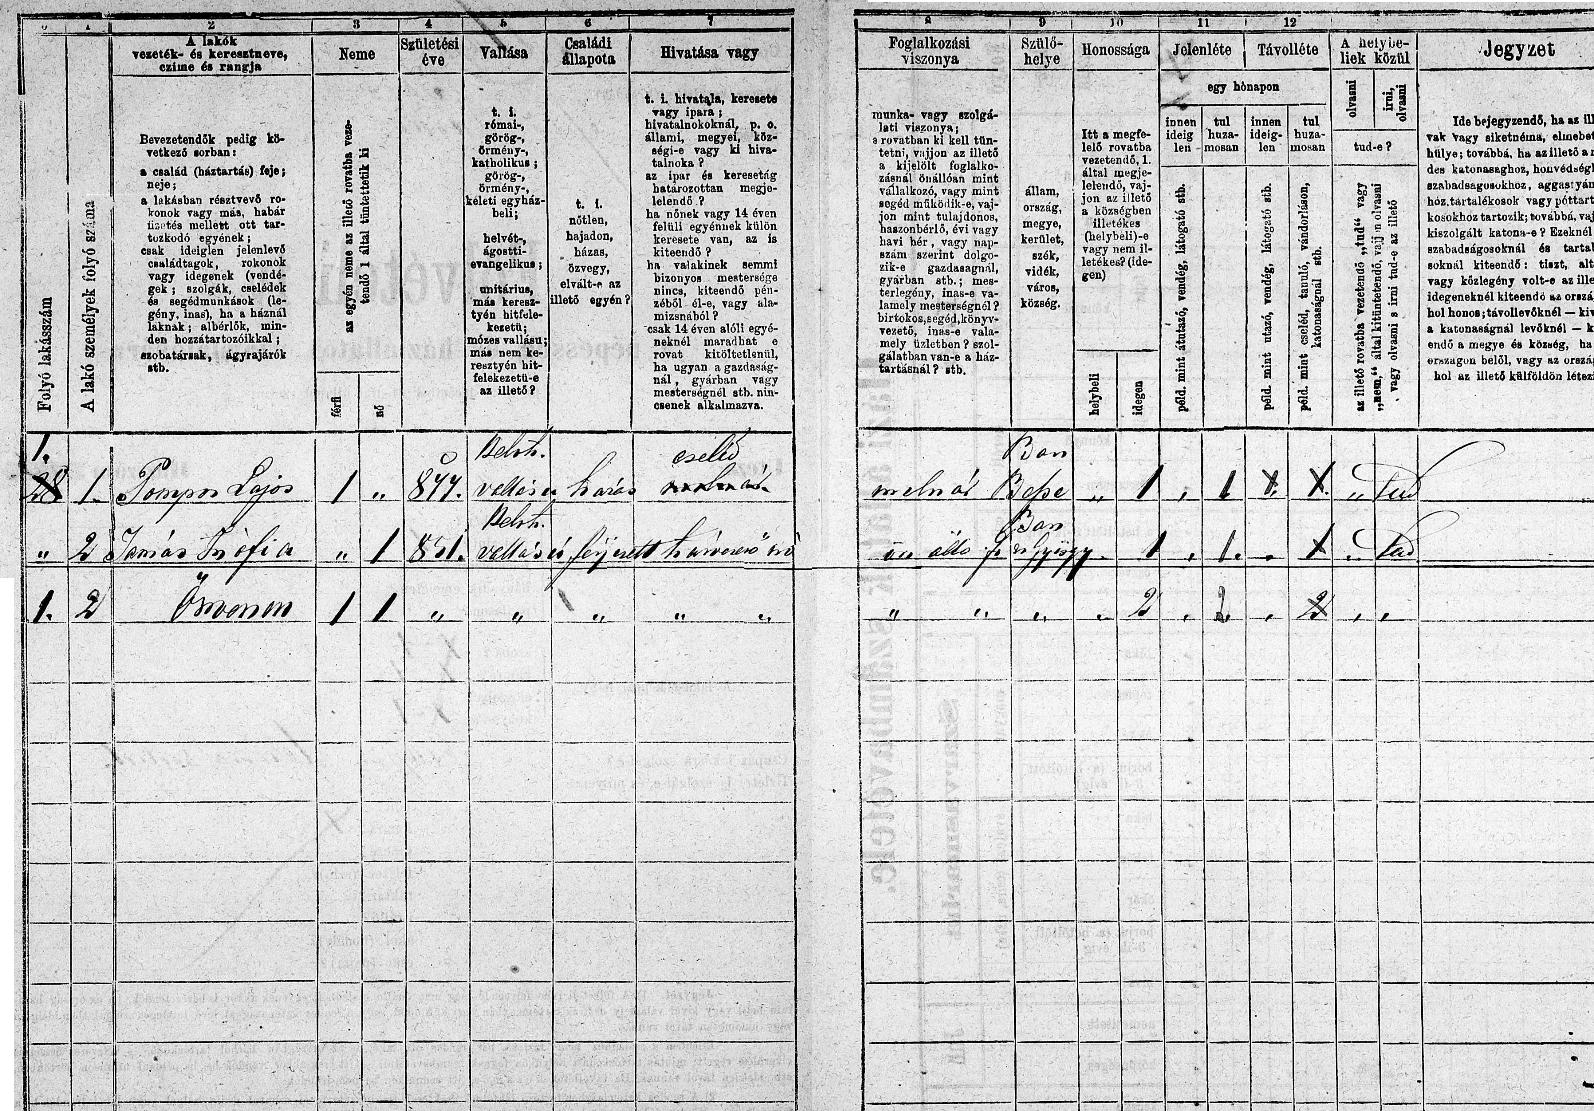 1 2 3 4 5 6 7 8 9 10 11 12
Folyó lakásszám
A lakó személyek folyó száma
A lakók
vezeték- és keresztneve,
czime és rangja
Bevezetendők pedig kö-
vetkező sorban:
a család (háztartás) feje;
neje;
a lakásban résztvevő ro-
konok vagy más, habár
üzetés mellett ott tar-
tozkodó egyének;
csak ideiglen jelenlevő
családtagok, rokonok
vagy idegenek (vendé-
gek; szolgák, cselédek
és segédmunkások (le-
gény, inas), ha a háznál
laknak; albérlők, min-
den hozzátartozóikkal;
szobatársak, ágyrajárók
stb.
Neme
az egyén neme az illető rovatba veze-
tendő 1 által tüntettetik ki
férfi
nő
Születési
éve
Vallása
t. i.
római-,
görög-,
örmény-,
katholikus;
görög-,
örmény-,
kéleti egyház-
beli;
helvét-,
ágostti-
evangelikus;
unitárius,
más keresz-
tyén hitfele-
kezetü;
mózes vallásu;
más nem ke-
resztyén hit-
felekezetü-e
az illető?
Családi
állapota
t. i.
nőtlen,
hajadon,
házas,
özvegy,
elvált-e az
illető egyén?
Hivatása vagy
t. i. hivatala, keresete
vagy ipara;
hivatalnokoknál, p. o.
állami, megyei, köz-
ségi-e vagy ki hiva-
talnoka?
az ipar és keresetág
határozottan megje-
lelendő?
ha nőnek vagy 14 éven
felüli egyénnek külön
keresete van, az is
kiteendő?
ha valakinek semmi
bizonyos mestersége
nincs, kiteendő pén-
zéből él-e, vagy ala-
mizsnából?
csak 14 éven alóli egyé-
neknél maradhat e
rovat kitöltetlenül,
ha ugyan a gazdaság-
nál, gyárban vagy
mesterségnél stb. nin-
csenek alkalmazva.
Foglalkozási
viszonya
munka- vagy szolgá-
lati viszonya;
e rovatban ki kell tün-
tetni, vajjon az illető
a kijelölt foglalko-
zásnál önállóan mint
vállalkozó, vagy mint
segéd működik-e, vaj-
jon mint tulajdonos,
haszonbérlő, évi vagy
havi bér, vagy nap-
szám szerint dolgo-
zik-e gazdaságnál,
gyárban stb.; mes-
terlegény, inas-e va-
lamely mesterségnél?
birtokos, segéd, könyv-
vezető, inas-e vala-
mely üzletben? szol-
gálatban van-e a ház-
tartásnál? stb.
Szülő-
helye
állam,
ország,
megye,
kerület,
szék,
vidék,
város,
község.
Honossága
Itt a megfe-
lelő rovatba
vezetendő, 1.
által megje-
lelendő, vaj-
jon az illető
a községben
illetékes
(helybeli)-e
vagy nem il-
letékes? (ide-
gen)
helybeli
idegen
Jelenléte
Távolléte
egy hónapon
innen
ideig
len
tul
huza-
mosan
innen
ideig-
len
tul
huza-
mosan
péld. mint átutazó, vendég, látogató stb.
péld. mint utazó, vendég, látogató stb.
péld. mint cseléd, tanuló, vándorláson,
katonaságnál stb.
A helybe-
liek közül
olvasni
irni,
olvasni
tud-e?
az illető rovatba vezetendő „tud" vagy
„nem," által kitüntetendő, vajjon olvasni
vagy olvasni s irni tud-e az illető
Jegyzet
Ide bejegyzendő, ha az ill
vak vagy siketnéma, elmebet
hülye; továbbá, ha az illető a r
des katonasághoz, honvédségl
szabadságosokhoz, aggastyán
hóz, tartalékosok vagy póttart
kosokhoz tartozik; továbbá, vaj
kiszolgált katona-e? Ezeknél
szabadságosoknál és tartal
soknál kiteendő: tiszt, alt
vagy közlegény volt-e az ille
idegeneknél kiteendő az orszá
hol honos; távollevőknél — kiv
a katonaságnál levőknél — k
endő a megye és község, ha
országon belől, vagy az orszá
hol az illető külföldön létezi
1.
28 1. Pompos Lajos 1 „ 844. Helvt. vallásu házas cseléd molnár. molnár Bepe „ 1 „ 1 1. 1. „ Tud
„ 2 Tamás Zsófia „ 1 851. Helvt. vallásu férjezett 1 „ 1. „ 1 „ Tud
1. 2 Összesen 1 1 „ „ „ „ „ „ „ „ „ 2 „ 2 „ 2 „ „